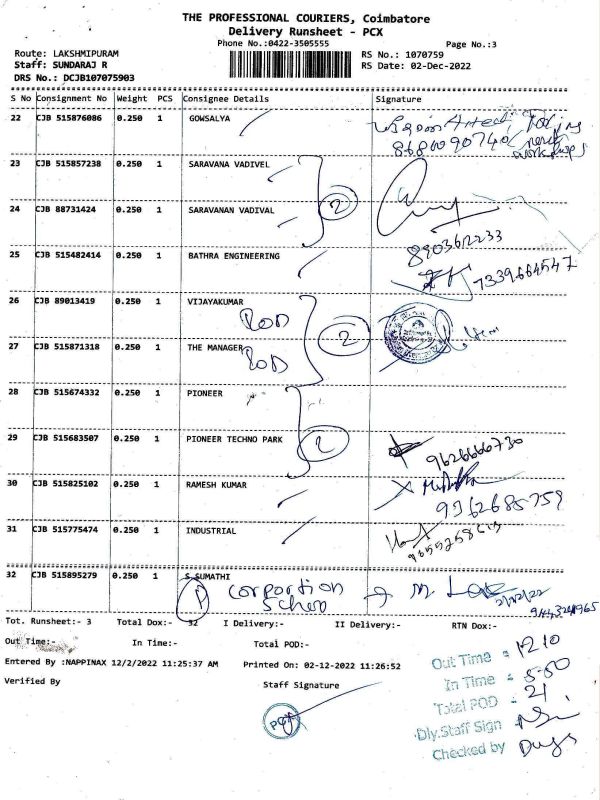 THE PROFESSIONAL COURIERS, Coimbatore
Delivery Runsheet - PCX
Phone No.:0422-3505555
Page No.:3
Route: LAKSHMIPURAM
RS No.: 1070759
Staff: SUNDARAJ R
RS Date: 02-Dec-2022
DRS No.: DCJB107075903
S No Consignment No Weight PCS Consignee Details Signature
22 CJB 515876086 0.250 1 GOWSALYA
8680090740
23 CJB 515857238 0.250 1 SARAVANA VADIVEL
2
24 CJB 88731424 0.250 1 SARAVANAN VADIVAL
25 CJB 515482414 0.250 1 BATHRA ENGINEERING
7339664547
26 CJB 89013419 0.250 1 VIJAYAKUMAR
POD
2
27 CJB 515871318 0.250 1 THE MANAGER
POD
28 CJB 515674332 0.250 1 PIONEER
29 CJB 515683507 0.250 1 PIONEER TECHNO PARK
2
9626666730
30 CJB 515825102 0.250 1 RAMESH KUMAR
9362685759
31 CJB 515775474 0.250 1 INDUSTRIAL
32 CJB 515895279 0.250 1 S.SUMATHI
Corportion
2/12/22
Tot. Runsheet:- 3 Total Dox:- 32 I Delivery:- II Delivery:- RTN Dox:-
Out Time:- In Time:- Total POD:-
Entered By :NAPPINAX 12/2/2022 11:25:37 AM Printed On: 02-12-2022 11:26:52
Verified By
Staff Signature
Out Time = 12.10
In Time = 5.50
Total POD = 21
Dly.Staff Sign
Checked by